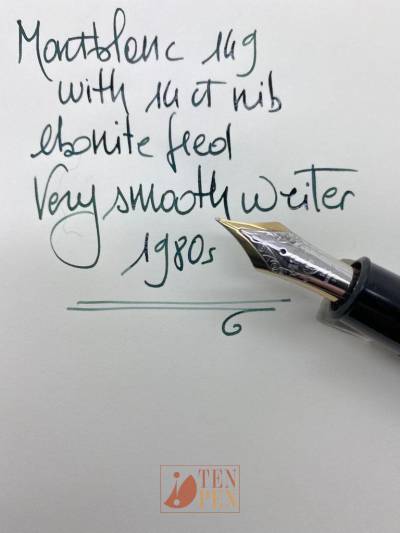 Montblanc 149
with 14 ct nib
ebonite feed
Very smooth writer
1980s
TEN
PEN